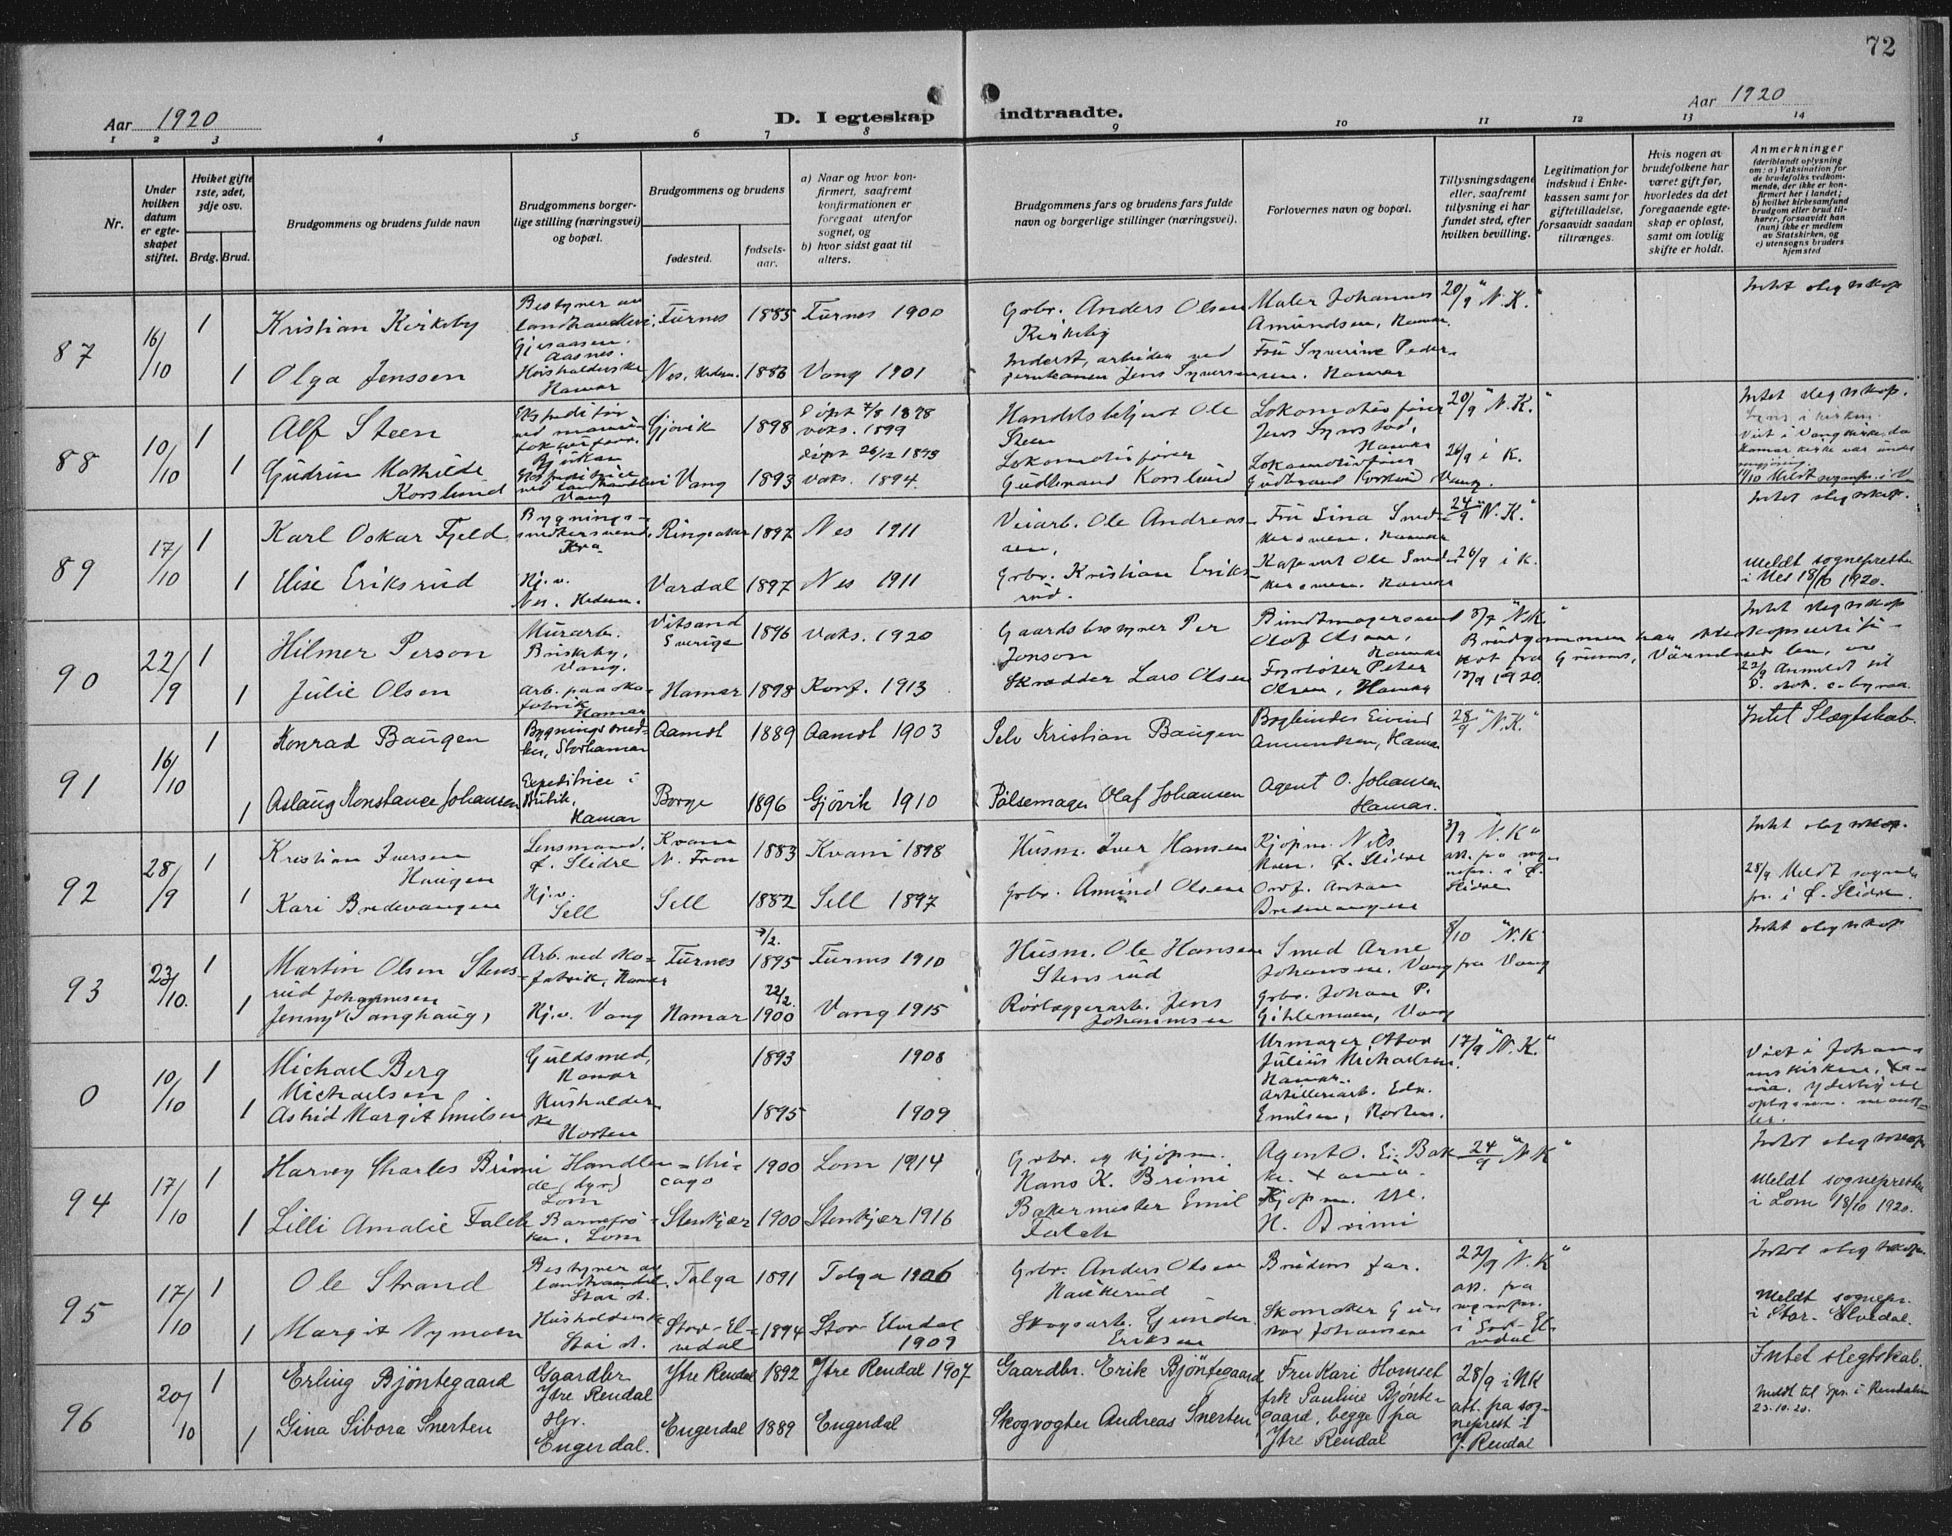 72
Aar 1920
D. I egteskap indtraadte.
Aar 1920
1 2 3 4 5 6 7 8 9 10 11 12 13 14
Nr.
Under hvilken datum er egteskapet stiftet.
Hviket gifte 1ste, 2det, 3dje osv.
Brdg. Brud.
Brudgommens og brudens fulde navn
Brudgommens borgerlige stilling (næringsvei) og bopæl.
Brudgommens og brudens
fødested.
fødselsaar.
a) Naar og hvor konfirmert, saafremt konfirmationen er foregaat utenfor sognet, og
b) hvor sidst gaat til alters.
Brudgommens fars og brudens fars fulde navn og borgerlige stillinger (næringsvei).
Forlovernes navn og bopæl.
Tillysningsdagene eller, saafremt tillysning ei har fundet sted, efter hvilken bevilling.
Legitimation for indskud i Enkekassen samt for giftetilladelse, forsaavidt saadan tiltrænges.
Hvis nogen av brudefolkene har været gift før, hvorledes da det foregaaende egteskap er opløst, samt om lovlig skifte er holdt.
Anmerkninger (deriblandt oplysning om: a) Vaksination for de brudefolks vedkommende, der ikke er konfirmert her i landet; b) hvilket kirkesamfund brudgom eller brud tilhører, forsaavidt han (hun) ikke er medlem av Statskirken, og c) utensogns bruders hjemsted
87 16/10 1 Kristian Kirkeby Bestyrer av landhandleri, Gjesaasen. Aasnes. Furnes 1885 Furnes 1900 Gbr. Anders Olsen Kirkeby Maler Johannes Amundsen, Hamar. 20/9 "N.K." Intet slegtskap
1 Olga Jenssen Husholderske Hamar Nes, Hedem. 1883 Vang 1901 Inderst, arbeider ved jernbanen Jens Syversen Fru Syverine Pedersen. Hamar
88 10/10 1 Alf Steen Gjøvik 1898 Døpt 7/8 1898 vaks. 1899 Handelsbetjent Ole Steen Lokomotivfører Jens Synstad, Hamar 20/9 "N.K." Intet slegtskap.
Viet i Vang kirke, da Hamar kirke var under
1 Gudrun Mathilde Korslund Vang 1893 døpt 26/12 1893 vaks. 1894. Lokomotivfører Gudbrand Korslund Lokomotivfører Gudbrand Korslund Vang. 26/9 i K.
89 17/10 1 Karl Oskar Fjeld Bygningssnekkersvend, Kra Ringsaker 1897 Nes 1911 Veiarb. Ole Andreassen, Fru Lina Hamar 24/9 "N.K." Intet slegtskap.
1 Elise Eriksrud Hj. v. Nes. Hedem. Vardal 1897 Nes 1911 Gbr. Kristian Eriksrud. Ole Hamar 26/9 i K. Meldt sognepresten i Nes 18/10 1920.
90 22/9 1 Hilmer Person Murarb. Briskeby, Vang. Vitsand Sverige 1896 Vaks. 1920 Gaardsbestyrer Per Jonson Buntmagersvend Olaf Olsen, Hamar "N.K." Intet slegtskap
Brudgommen har
1 Julie Olsen Arb. paa skofabrik Hamar Hamar 1898 Konf. 1913 Skrædder Lars Olsen Fyrbøter Peter Olsen, Hamar 1920.
91 16/10 1 Konrad Baugen Bygningssnedker, Storhamar Aamot 1889 Aamot 1903 Selv Kristian Baugen Bogbinder Eivind Amundsen, Hamar 28/9 "N.K." Intet Slægtskab.
1 Aslaug Konstance Johansen Expeditrice i Butik, Hamar Borge 1896 Gjøvik 1910 Pølsemager Olaf Johansen Agent O. Johansen Hamar.
92 28/9 1 Kristian Iversen Haugen Lensmand, Ø. Slidre Kvam N. Fron 1883 Kvam 1898 Husm. Iver Hansen Kjøpm. Nils Moen. Ø. Slidre "N.K" Intet slegtskap.
1 Kari Bredevangen Hj. v. Sell Sell 1882 Sell 1897 Gbr. Amund Olsen Bredevangen 28/9 Meldt sognepr. i Ø. Slidre.
93 23/10. 1 Martin Olsen Stensrud Arb. ved skofabrik, Hamar Furnes 7/2. 1895 Furnes 1910 Husm. Ole Hansen Stensrud Smed Arne Johansen. Vang 8/10 "N.K" fra Vang Intet slegtskap
1 Jenny Johannsen Hj. v. Vang Hamar 22/2. 1900 Vang 1915 Rørlæggerarb. Jens Johannsen Gbr. Johan P. Vang
0 10/10 1 Michael Berg Michaelsen Guldsmed, Hamar 1893 1908 Urmager Julius Michaelsen Hamar. 17/9 "N.K." Viet i Johanneskirken,
1 Astrid Margit Emilsen Husholderske Horten 1895 1909 Artilleriarb. Edv. Emilsen, Horten.
94 17/10 1 Harvey Charles Brimi Lom Chicago 1900 Lom 1914 Gbr. og kjøpm. Hans K. Brimi Agent O. 24/9 "N.K" Intet slegtskap
1 Lilli Amalie Falch Lom Stenkjær 1900 Stenkjær 1916 Bakermester Emil Falch Kjøpm. H. Brimi Meldt sognepresten i Lom 18/10 1920.
95 17/10 1 Ole Strand Bestyrer av landhandel, Stai st. Tolga 1891 Tolga 1906 Gbr. Anders Olsen Brudens far. 22/9 "N.K" att. fra sognepr. i Stor-Elvedal Intet slegtskap.
1 Margit Nymoen Husholderske Stai st. Stor-Elvedal 1894 Stor-Elvedal 1909 Skogsarb. Gunder Eriksen Skomaker Gunnar Johansen Meldt sognepr. i Stor-Elvedal.
96 20/10 1 Erling Bjöntegaard Gaardbr Ytre Rendal Ytre Rendal 1892 Ytre Rendal 1907 Gaardbr. Erik Bjöntegaard Fru Kari Homset frk Pauline Bjöntegaard, begge på Ytre Rendal 28/9 i NK att. på sogneprest i Y. Rendal Intet slegtskab.
Meldt til Spr. i Rendalen 23.10.20.
1 Gina Sibora Snerten Hjv. Engerdal. Engerdal 1889 Engerdal Skogvogter Andreas Snerten